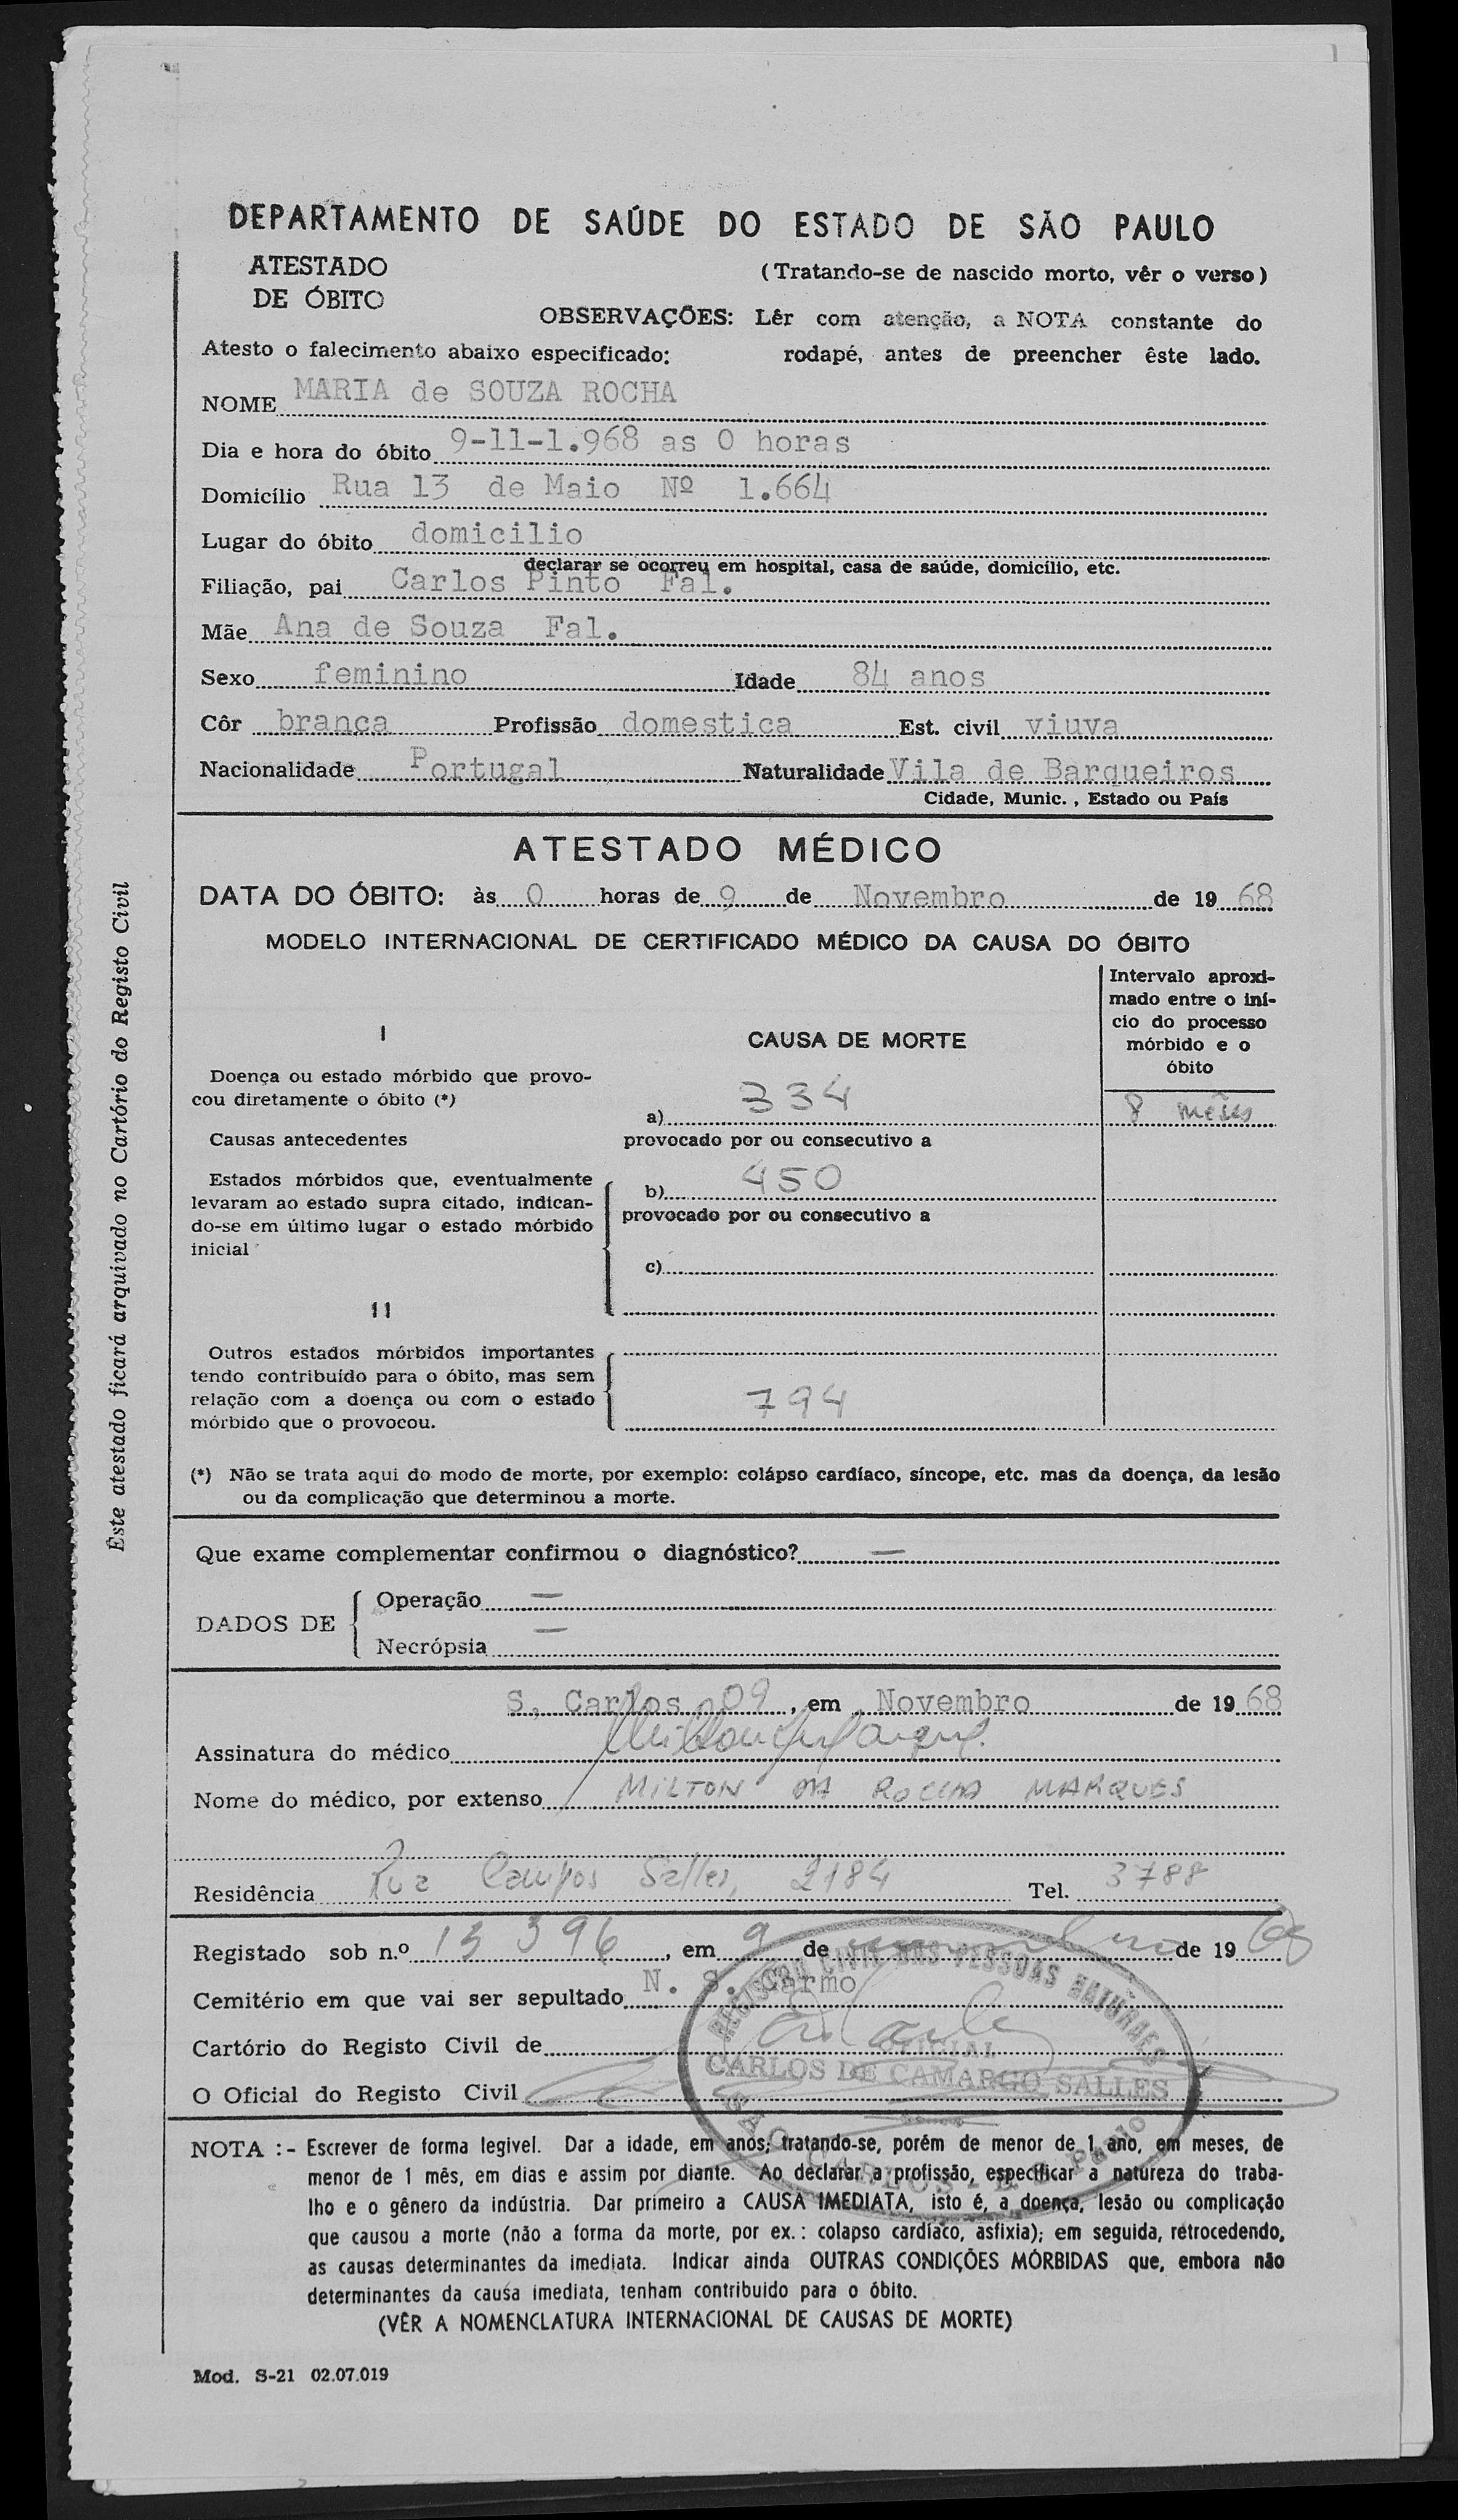 DEPARTAMENTO DE SAÚDE DO ESTADO DE SÃO PAULO
ATESTADO
DE ÓBITO
(Tratando-se de nascido morto, vêr o verso)
OBSERVAÇÕES: Lêr com atenção, a NOTA constante do
rodapé, antes de preencher êste lado.
Atesto o falecimento abaixo especificado:
NOME MARIA de SOUZA ROCHA
Dia e hora do óbito 9-11-1.968 as 0 horas
Domicílio Rua 13 de Maio Nº 1.664
Lugar do óbito domicilio
declarar se ocorreu em hospital, casa de saúde, domicílio, etc.
Filiação, pai Carlos Pinto Fal.
Mãe Ana de Souza Fal.
Sexo feminino Idade 84 anos
Côr branca Profissão domestica Est. civil viuva
Nacionalidade Portugal Naturalidade Vila de Barqueiros
Cidade, Munic., Estado ou País
ATESTADO MÉDICO
DATA DO ÓBITO: às 0 horas de 9 de Novembro de 19 68
MODELO INTERNACIONAL DE CERTIFICADO MÉDICO DA CAUSA DO ÓBITO
Intervalo aproxi-
mado entre o iní-
cio do processo
mórbido e o
óbito
I
CAUSA DE MORTE
Doença ou estado mórbido que provo-
cou diretamente o óbito (*)
a) 334 8 mêses
Causas antecedentes
provocado por ou consecutivo a
Estados mórbidos que, eventualmente
levaram ao estado supra citado, indican-
do-se em último lugar o estado mórbido
inicial
b) 450
provocado por ou consecutivo a
c)
II
Outros estados mórbidos importantes
tendo contribuído para o óbito, mas sem
relação com a doença ou com o estado
mórbido que o provocou.
794
(*) Não se trata aqui do modo de morte, por exemplo: colápso cardíaco, síncope, etc. mas da doença, da lesão
ou da complicação que determinou a morte.
Que exame complementar confirmou o diagnóstico? —
DADOS DE
Operação —
Necrópsia —
S, Carlos 09, em Novembro de 19 68
Assinatura do médico
Nome do médico, por extenso MILTON DA ROCHA MARQUES
Residência Rua Campos Salles, 2184 Tel. 3788
Registado sob n.º 13 396, em 9 de novembro de 19 68
Cemitério em que vai ser sepultado N. S. Carmo
Cartório do Registo Civil de
O Oficial do Registo Civil
REGISTRO CIVIL DAS PESSOAS NATURAES
OFICIAL
CARLOS DE CAMARGO SALLES
NOTA :- Escrever de forma legivel. Dar a idade, em anos; tratando-se, porém de menor de 1 ano, em meses, de
menor de 1 mês, em dias e assim por diante. Ao declarar a profissão, especificar a natureza do traba-
lho e o gênero da indústria. Dar primeiro a CAUSA IMEDIATA, isto é, a doença, lesão ou complicação
que causou a morte (não a forma da morte, por ex.: colapso cardíaco, asfixia); em seguida, retrocedendo,
as causas determinantes da imediata. Indicar ainda OUTRAS CONDIÇÕES MÓRBIDAS que, embora não
determinantes da causa imediata, tenham contribuido para o óbito.
(VÊR A NOMENCLATURA INTERNACIONAL DE CAUSAS DE MORTE)
Mod. S-21 02.07.019
Êste atestado ficará arquivado no Cartório do Registo Civil